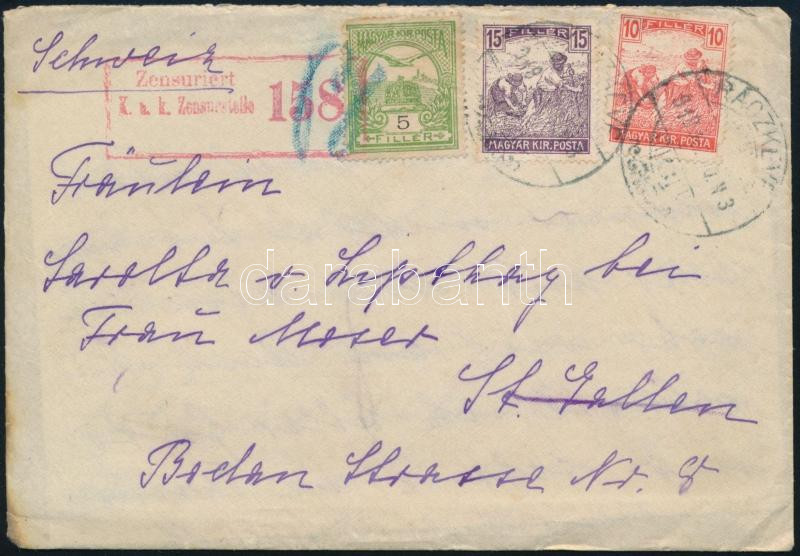 Schweiz
Zensuriert
K. u. k. Zensurstelle 158
MAGYAR KIR. POSTA
5
FILLER
15 FILLER 15
MAGYAR KIR. POSTA
10 FILLER 10
MAGYAR KIR. POSTA
RÁCZKEVE
Fräulein
Sarolta v. Lipthay bei
darabanth
Frau Moser
St. Gallen
Bodan Strasse Nr. 8